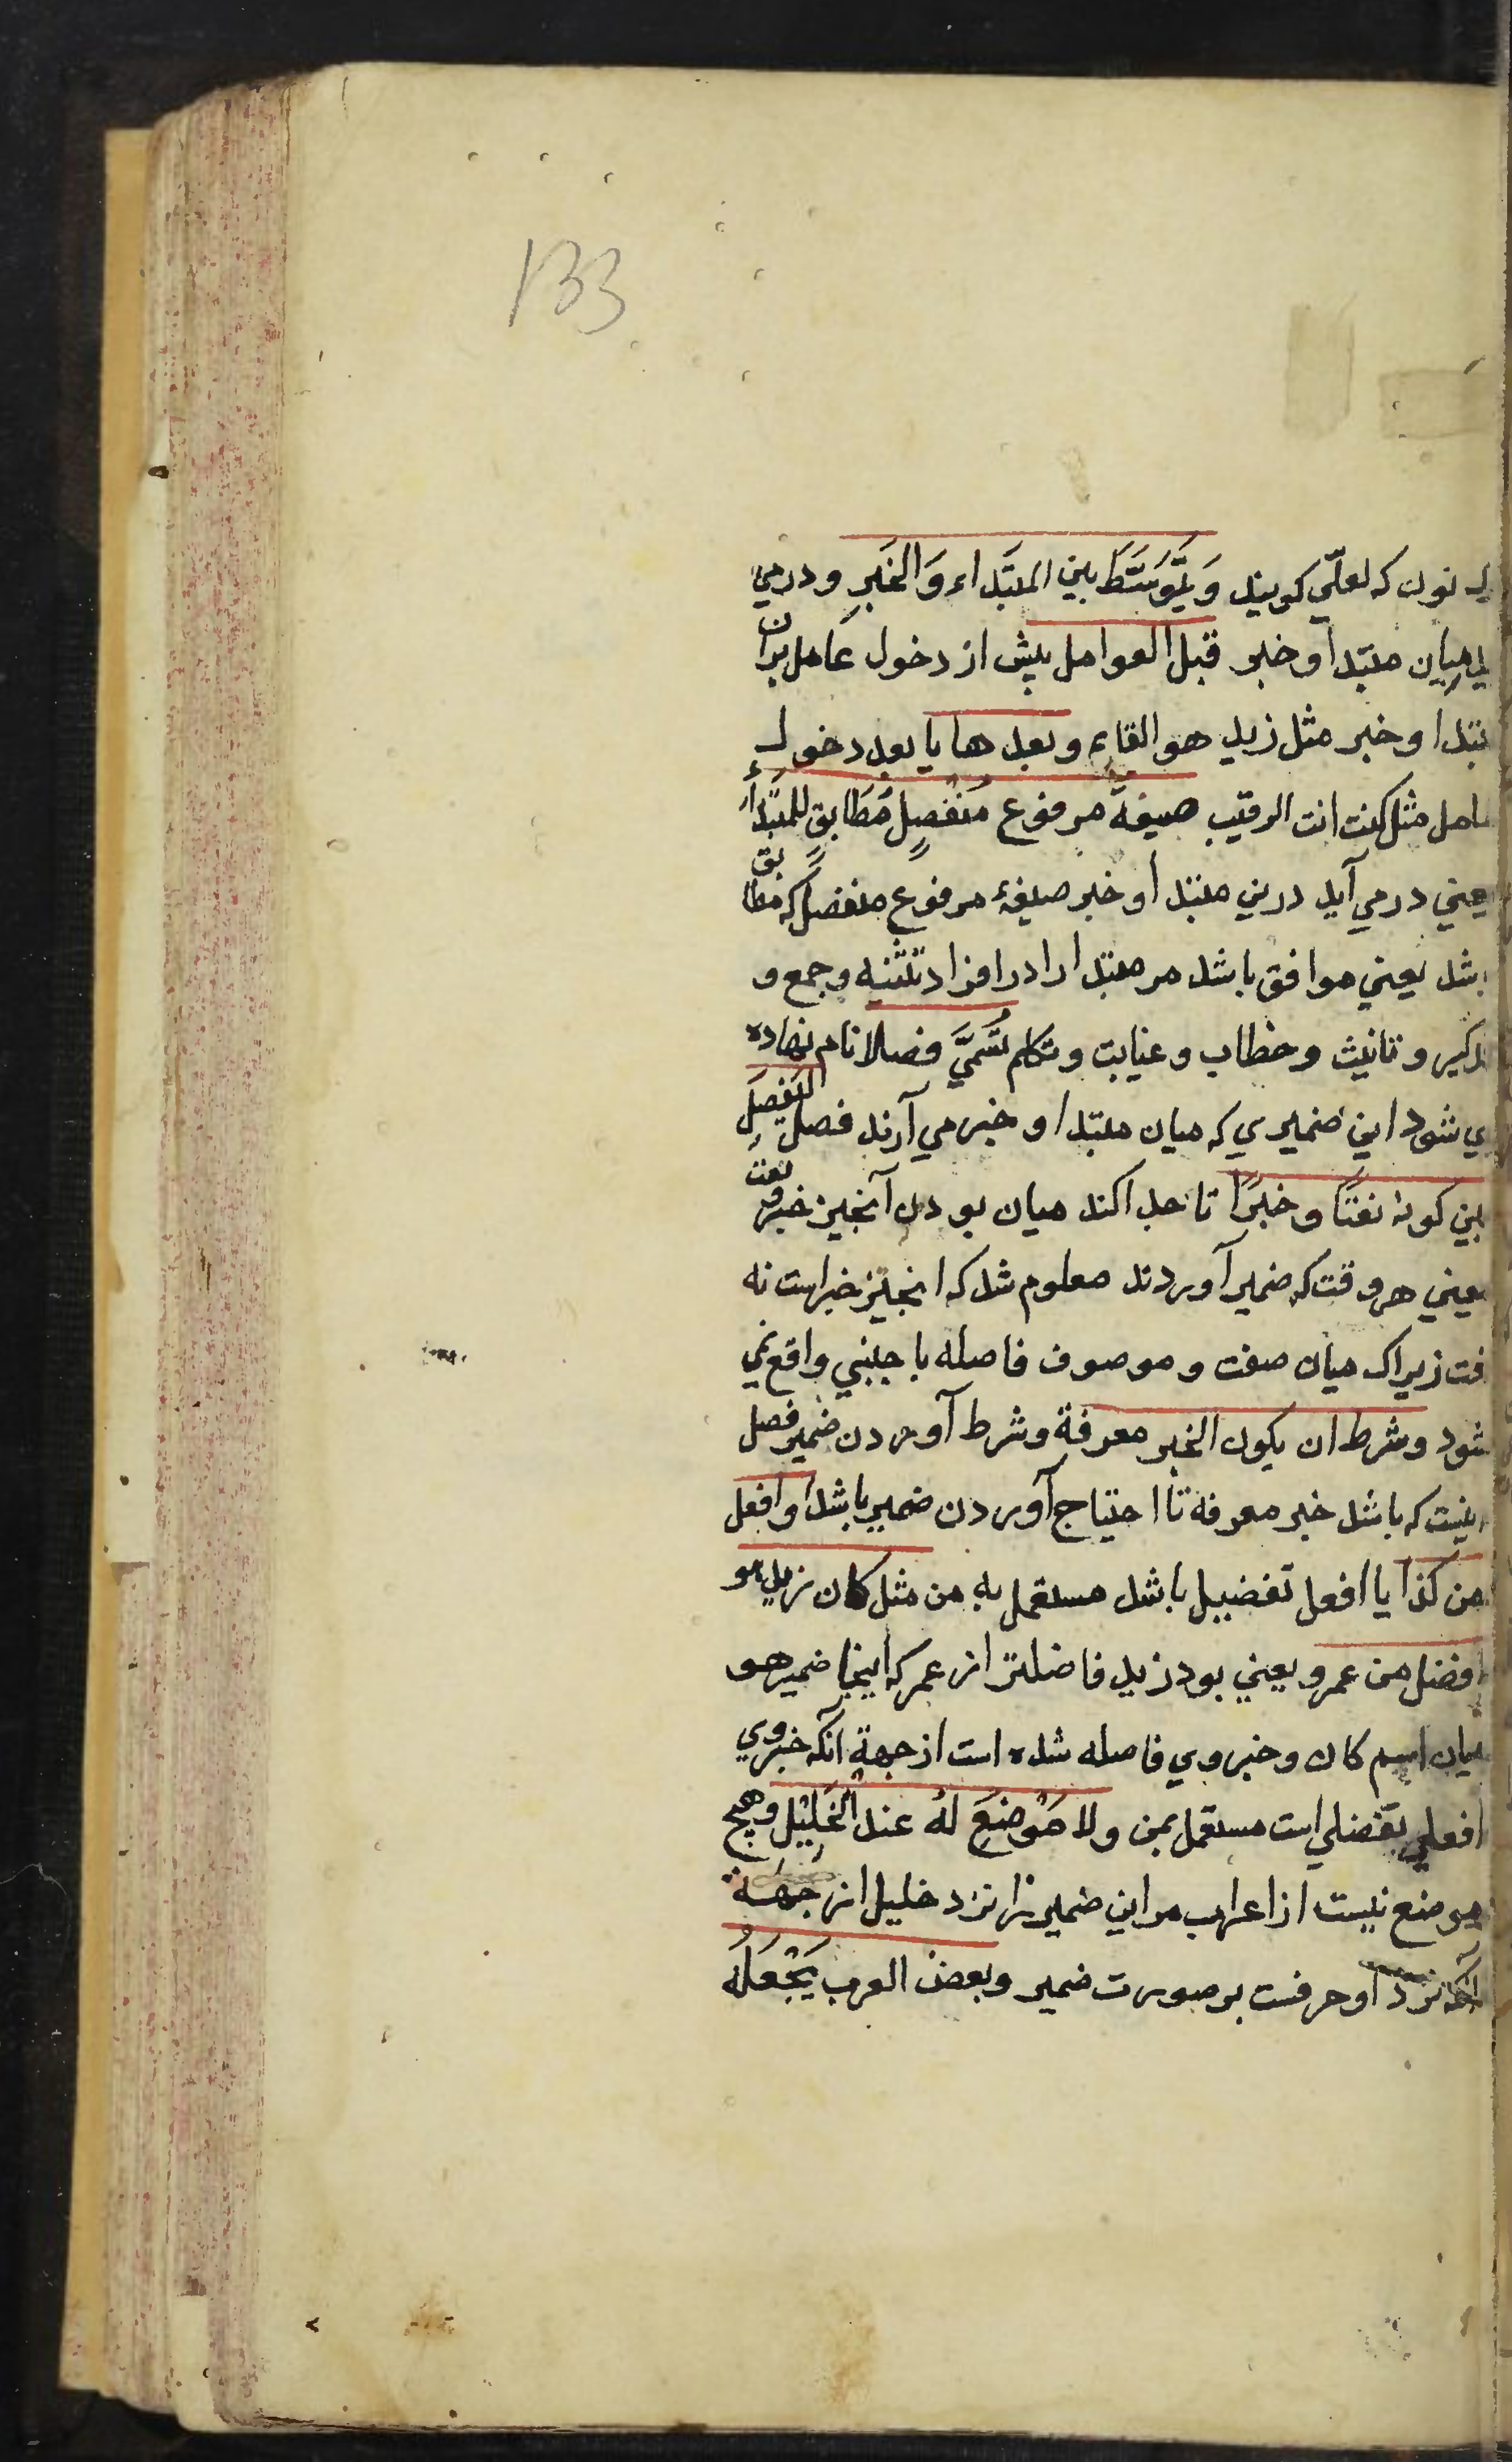 133
نون که لعلّی کویند وَیَتَوَسَّطَ بین المبتداء وَالخَبرِ ودرمی
میان مبتدا و خبر قبل العوامل پیش از دخول عامل بران
بتدا و خبر مثل زید هو القاىم وبعدها یا بعد دخول
امل مثل کنت انت الرقیب صیغة مرفوع مُنفصِلٍ مُطَابقٍ للمبتدأ
یعنی درمی آید درین مبتدا و خبر صیغهٔ مرفوع منفصل که مطابق
باشد یعنی موافق باشد مر مبتدا را در افراد تثنیه وجمع و
ذکیر و تانیث و خطاب و غیابت و تکلم تُسَمیَّ فصلا نام نهاده
ی شود این ضمیری که میان مبتدا و خبر می آرند فصل لیَفصِلَ
بین کونه نعتًا و خبرًا تا جدا کند میان بودن آنچیز خبر و نعت
یعنی هر وقت که ضمیر آوردند معلوم شد که انچیز خبر است نه
فت زیراک میان صفت و موصوف فاصله باجنبی واقع نمی
شود وشرط ان یکون الخبر معرفة وشرط آوردن ضمیر فصل
اینست که باشد خبر معرفه تا احتیاج آوردن ضمیر باشد او افعل
من کذا یا افعل تفضییل باشد مستعمل به من مثل کان زید هو
افضل من عمرو یعنی بود زید فاضلتر از عمر که اینجا ضمیر هو
میان اسم کان و خبر وی فاصله شده است از جهة آنکه خبر وی
افعلی تفضلی است مستعمل بمن ولا مَوْضِعَ لهُ عندَ الْخَلِیْلِ وهیچ
موضع نیست از اعراب مر این ضمیر را نزد خلیل از جهة
آنکه نزد او حرفست بر صورت ضمیر وبعض العرب یَجْعَلُهُ